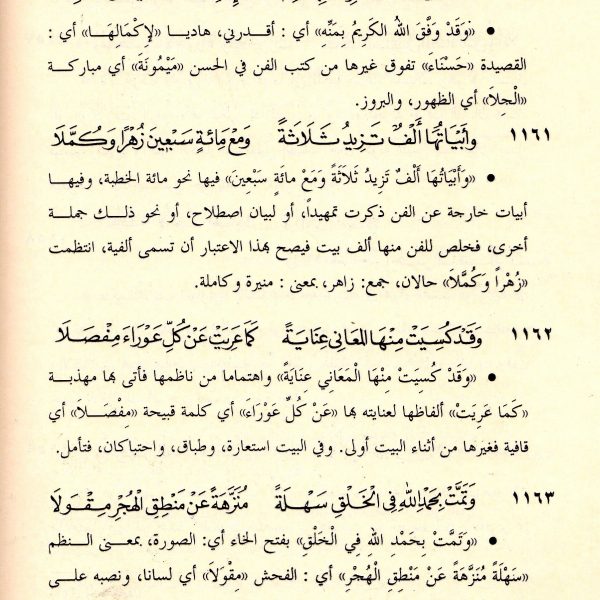 • «وَقَدْ وَفَّقَ اللهُ الكَرِيمُ بِمَنِّهِ» أي : أقدرني، هاديا «لإِكْمَالِهَا» أي :
القصيدة «حَسْنَاءَ» تفوق غيرها من كتب الفن في الحسن «مَيْمُونَةَ» أي مباركة
«الْجِلاَ» أي الظهور، والبروز.
١١٦١ وَأَبْيَاتُهَا أَلْفٌ تَزِيدُ ثَلَاثَةً وَمَعْ مِائَةٍ سَبْعِينَ زُهْرًا وَكُمَّلَا
• «وَأَبْيَاتُهَا أَلْفٌ تَزِيدُ ثَلَاثَةً وَمَعْ مائَةٍ سَبْعِينَ» فيها نحو مائة الخطبة، وفيها
أبيات خارجة عن الفن ذكرت تمهيداً، أو لبيان اصطلاح، أو نحو ذلك جملة
أخرى، فخلص للفن منها ألف بيت فيصح بهذا الاعتبار أن تسمى ألفية، انتظمت
«زُهْراً وَكُمَّلاَ» حالان، جمع: زاهر، بمعنى : منيرة وكاملة.
١١٦٢ وَقَدْ كُسِيَتْ مِنْهَا المَعَانِي عِنَايَةً كَمَا عَرِيَتْ عَنْ كُلِّ عَوْرَاءَ مِفْصَلَا
• «وَقَدْ كُسِيَتْ مِنْهَا المَعَانِي عِنَايَةً» واهتماما من ناظمها فأتى بها مهذبة
«كَمَا عَرِيَتْ» ألفاظها لعنايته بها «عَنْ كُلِّ عَوْرَاءَ» أي كلمة قبيحة «مِفْصَلاَ» أي
قافية فغيرها من أثناء البيت أولى. وفي البيت استعارة، وطباق، واحتباكان، فتأمل.
١١٦٣ وَتَمَّتْ بِحَمْدِ اللهِ فِي الخَلْقِ سَهْلَةً مُنَزَّهَةً عَنْ مَنْطِقِ الهُجْرِ مِقْوَلَا
• «وَتَمَّتْ بِحَمْدِ اللهِ فِي الْخَلْقِ» بفتح الخاء أي: الصورة، بمعنى النظم
«سَهْلَةً مُنَزَّهَةً عَنْ مَنْطِقِ الْهُجْرِ» أي : الفحش «مِقْوَلاَ» أي لسانا، ونصبه على